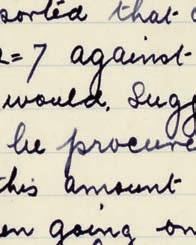 sorted that
2=7 against
would, Sugg
be procure
this amount
en going on